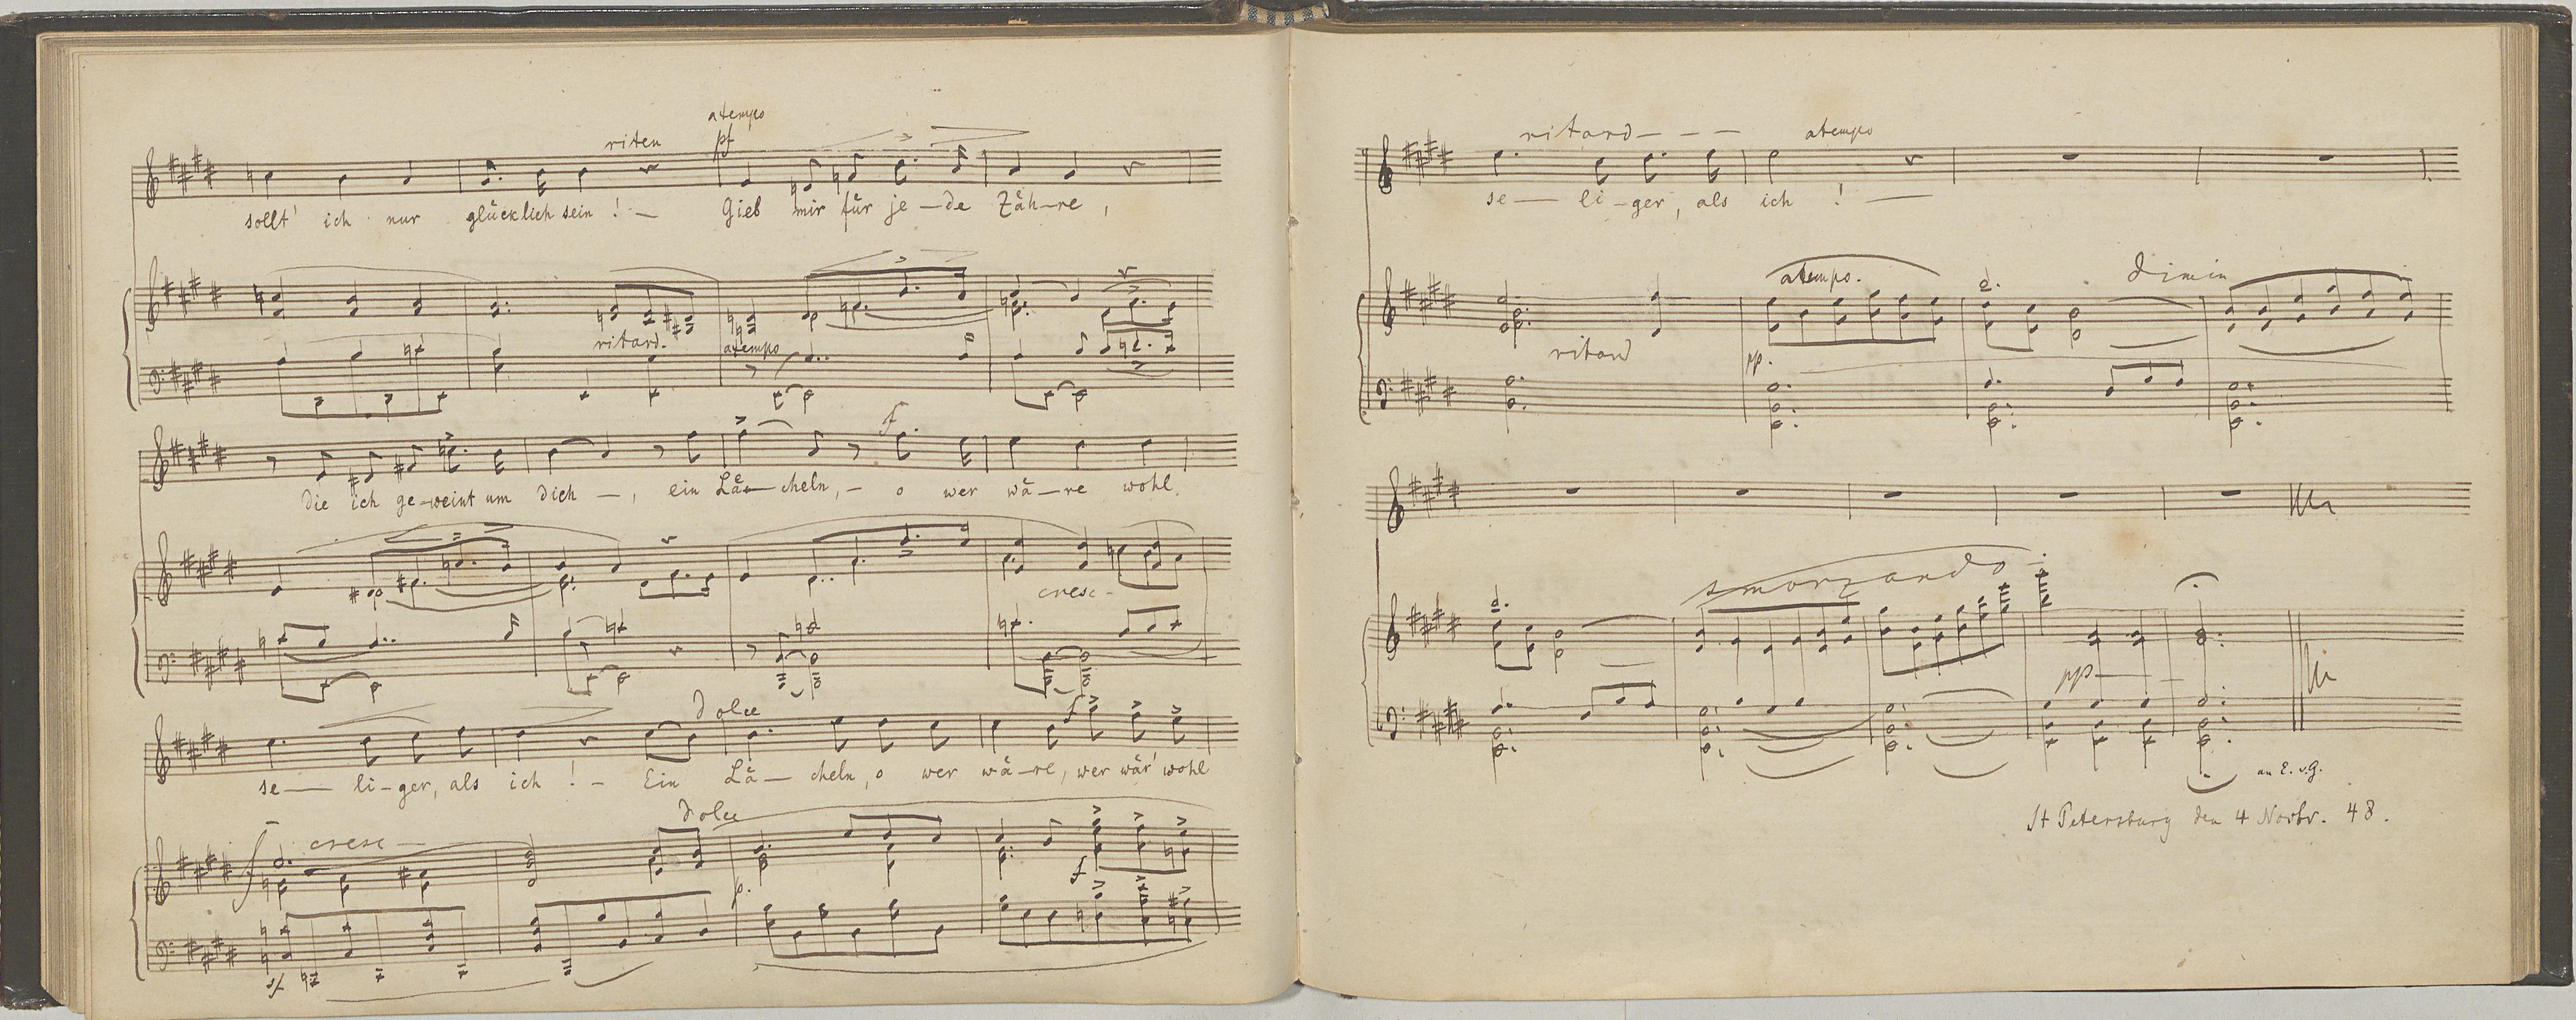 atempo
riten pf
sollt' ich nur glücklich sein ! — Gieb mir für je — de Zäh — re ,
ritard. atempo
f
die ich ge-weint um dich — , ein Lä — cheln, — o wer wä — re wohl.
cresc -
dolce f
se — li — ger, als ich ! — Ein Lä — cheln, o wer wä — re, wer wär' wohl
dolce
f cresc —
p. f
sf
ritard — — — atempo
se — li — ger, als ich ! —
atempo. dimin
ritard pp.
smorzando
pp
an E. v. G.
St Petersburg den 4 Novbr. 48.